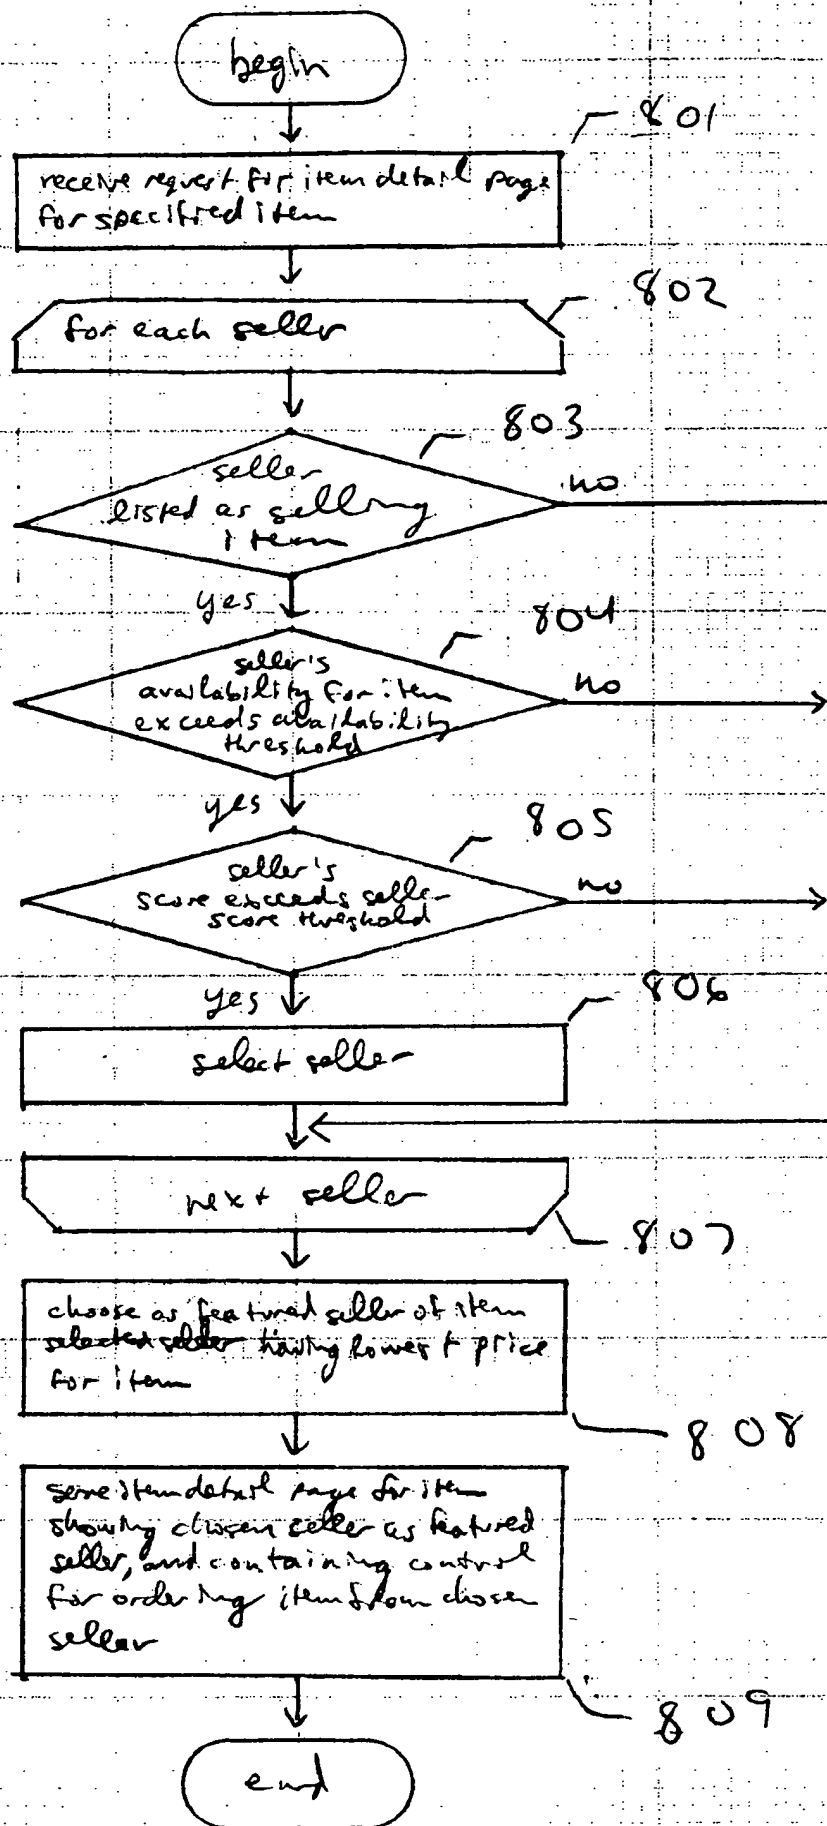 begin
801
receive request for item detail page
for specified item
802
for each seller
803
seller
listed as selling
item
no
yes
804
seller's
availability for item
exceeds availability
threshold
no
yes
805
seller's
score exceeds seller
score threshold
no
yes
806
select seller
next seller
807
choose as featured seller of item
selected seller having lowest price
for item
808
serve item detail page for item
showing chosen seller as featured
seller, and containing control
for ordering item from chosen
seller
809
end